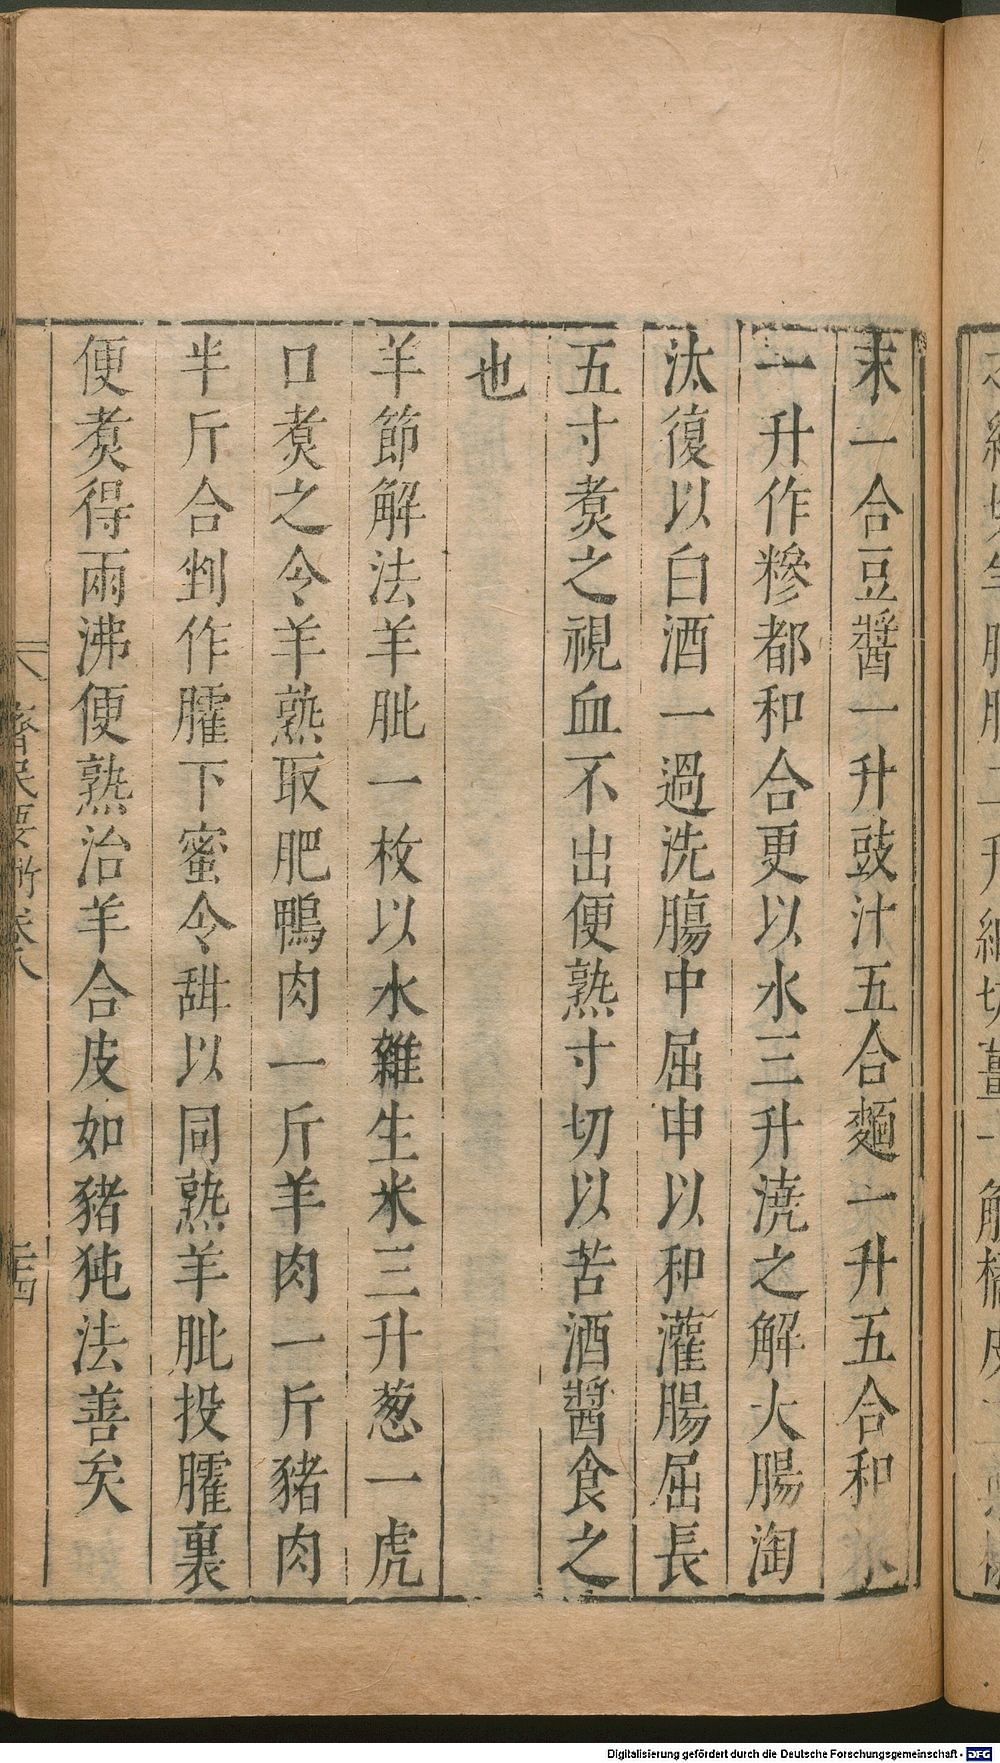 末一合豆醬一升豉汁五合麵一升五合和米
一升作糝都和合更以水三升澆之解大腸淘
汰復以白酒一過洗膓中屈申以和灌腸屈長
五寸煮之視血不出便熟寸切以苦酒醬食之
也
羊節解法羊肶一枚以水雜生米三升葱一虎
口煮之令羊熟取肥鴨肉一斤羊肉一斤豬肉
半斤合剉作臛下蜜令甜以同熟羊肶投臛裏
便煮得兩沸便熟治羊合皮如豬㹠法善矣
齊民要術卷八
Digitalisierung gefördert durch die Deutsche Forschungsgemeinschaft - DFG